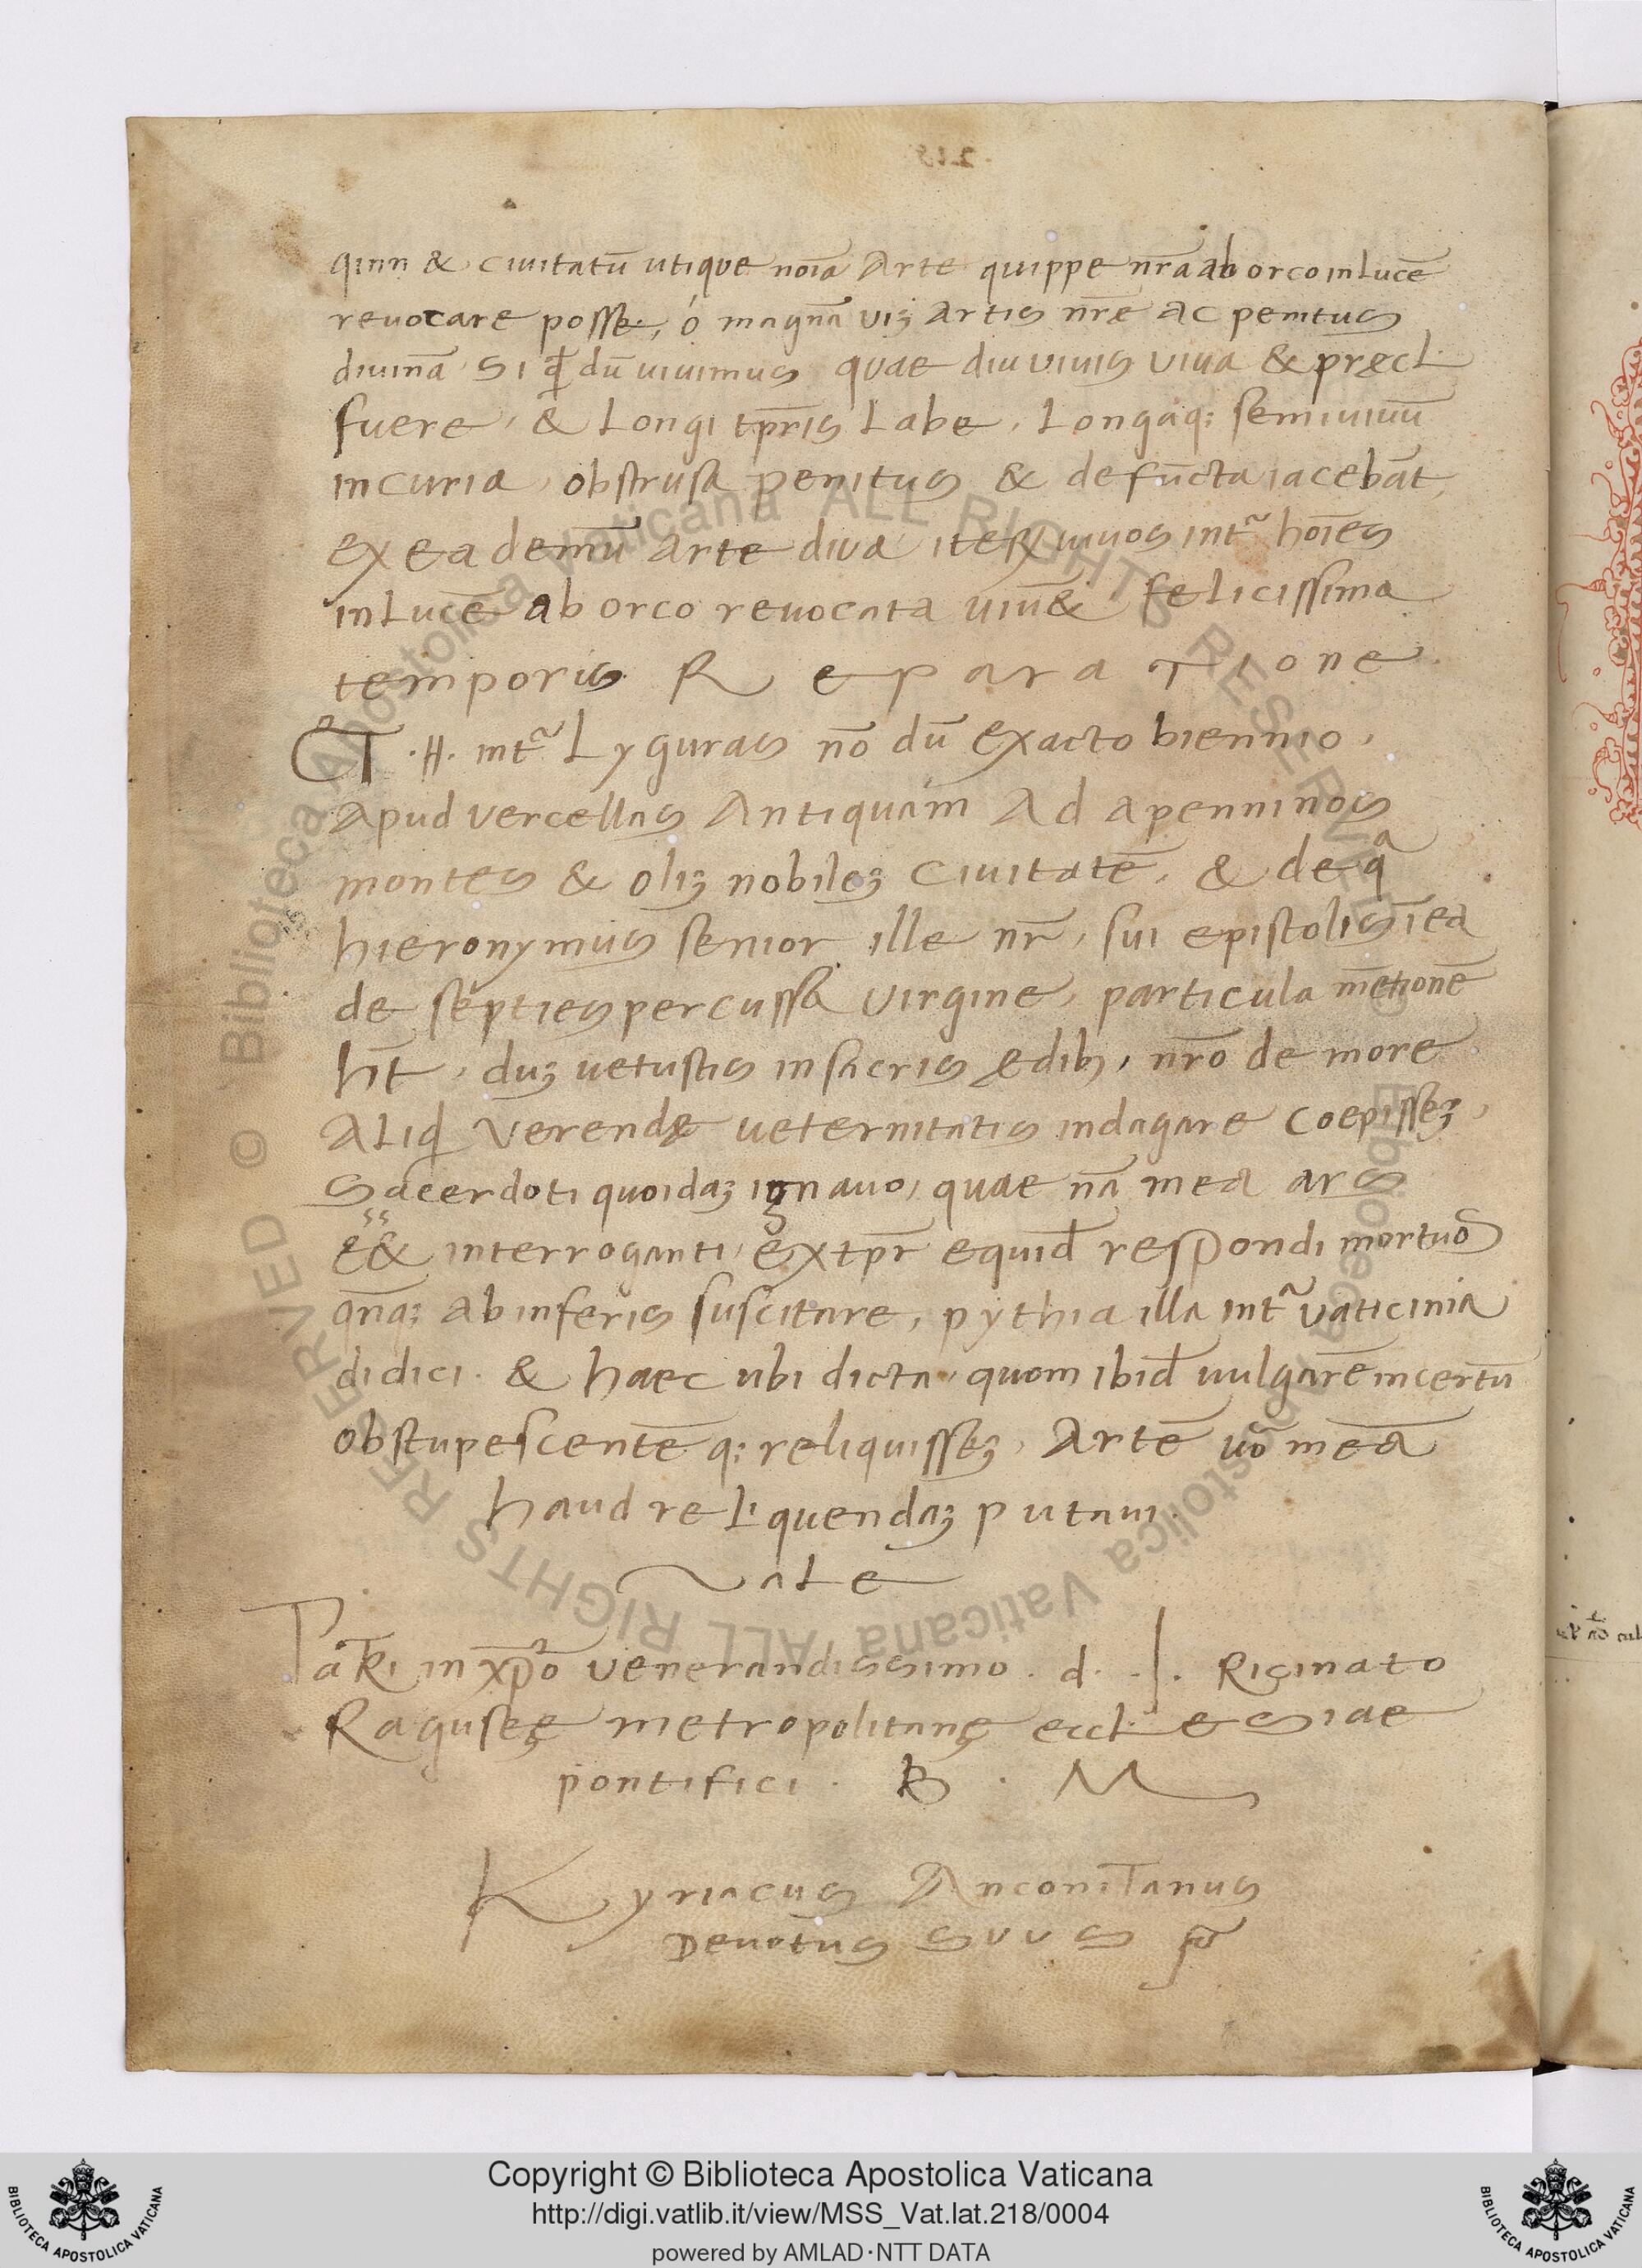 qinn & ciuitatū utique noīa Arte quippe nr̄a ab orco in Lucē
reuocare posse, ó magnā uiʒ Artis nr̄e AC penitus
diuinā Si dū uiuimus quae diu uiuis viua & pręcl.
fuere, & Longi tp̄ris Labe, Longaq; semiuiuū
incuria, obstrusa penitus & defūcta iacebāt,
ex ea demū arte diua iteꝝ uiuos int̃ hoīes
in Lucē ab orco reuocata uiū& feLicissima
temporis Reparatione
ET .H. int̃ Lyguras nō dū exacto biennio,
Apud vercellas Antiquám Ad apenninos
montes & oliʒ nobileʒ Ciuitatē, & de q̄
hieronymus senior ille nr̄, sui epistolis ī ea
de septies percussa virgine, particula mētionē
hīt, duʒ uetustis in sacris ędibʒ, nr̄o de more
ALiqd verendę ueternitatis indagare Coepisseʒ,
Sacerdoti quoidaʒ ignauo, quae nā mea ars
ēē& interroganti, ext̄pr equid̄ respondi mortuō
qn̄q; ab inferis suscitare, pythia illa int̃ vaticinia
didici. & haec ubi dicta, quom ibid̄ uulgarē incertū
obstupescentē q; reliquisseʒ, Artē uō meā
haud reLiquendaʒ putaui.
VaLe
Pat̄ri in xp̄o venerandissimo. d. .J. Ricinato
Raguseę metropolitanę eccLesiae
pontifici. B. M
Kyriacus Anconitanus
Deuotus suus
Copyright © Biblioteca Apostolica Vaticana
http://digi.vatlib.it/view/MSS_Vat.lat.218/0004
powered by AMLAD·NTT DATA
BIBLIOTECA APOSTOLICA VATICANA
BIBLIOTECA APOSTOLICA VATICANA
© Biblioteca Apostolica Vaticana ALL RIGHTS RESERVED
© Biblioteca Apostolica Vaticana ALL RIGHTS RESERVED